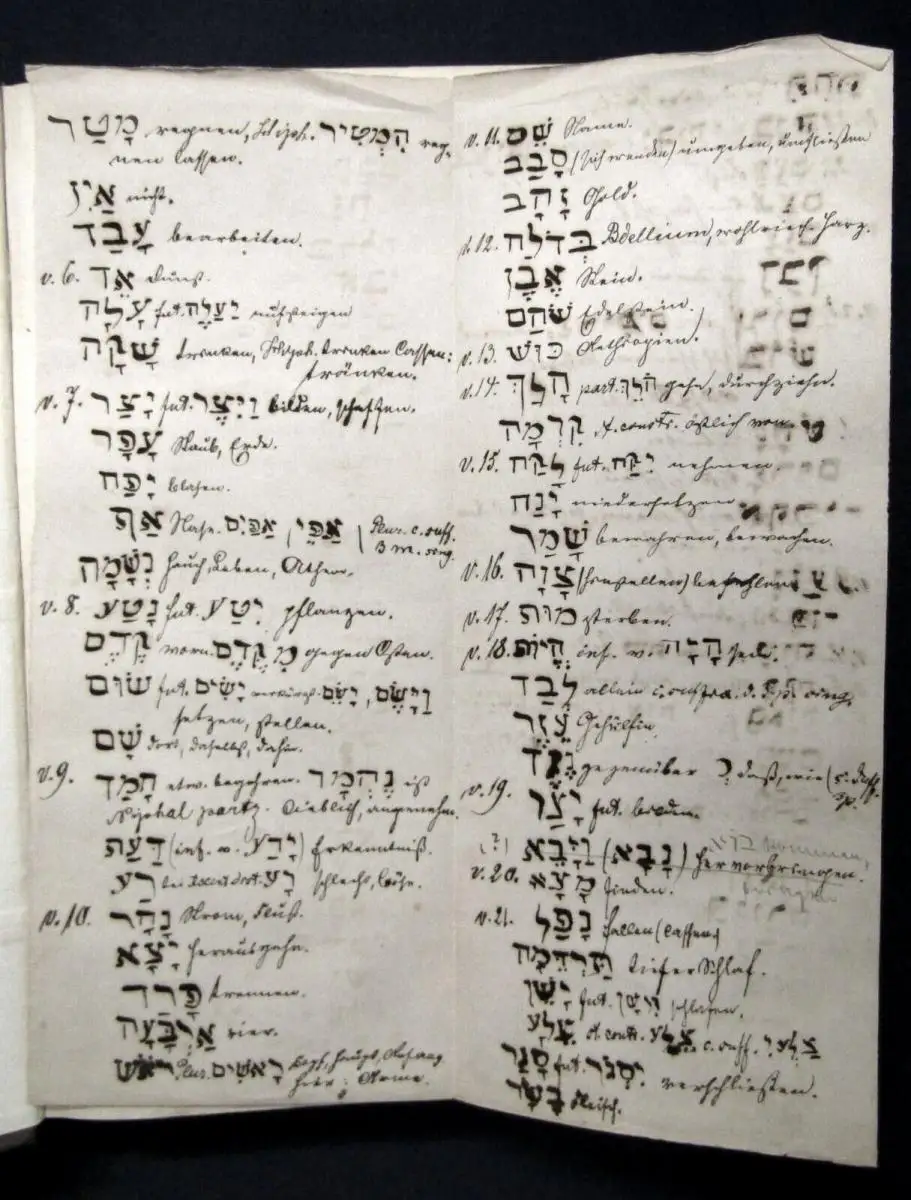 מָטַר regnen, Hiph. הִמְטִיר reg-
nen lassen.
אַיִן nicht.
עָבַד bearbeiten.
v. 6. אֵד Dunst.
עָלָה fut. יַעֲלֶה aufsteigen
שָׁקָה trinken, Hiph. trinken lassen:
tränken.
v. 7. יָצַר fut. וַיִּצֶר bilden, schaffen.
עָפָר Staub, Erde.
יָפַח blasen.
אַף Nase. אַפַּיִם Plur. c. suff.
3 m. sing.
נְשָׁמָה Hauch, Leben, Athem.
v. 8. נָטַע fut. יִטַּע pflanzen.
קֶדֶם vorn. מִקֶּדֶם gegen Osten.
שׂוּם fut. יָשִׂים verkürzt. יָשֵׂם, וַיָּשֶׂם
setzen, stellen.
שָׁם dort, daselbst, dahin.
v. 9. חָמַד etw. begehren. נֶחְמָד ist
Niphal partz. lieblich, angenehm.
דַּעַת (inf. v. יָדַע) Erkenntniß.
רַע רָע schlecht, böse.
v. 10. נָהָר Strom, Fluß.
יָצָא herausgehn.
פָּרַד trennen.
אַרְבָּעָה vier.
רֹאשׁ Plur. רָאשִׁים Kopf, Haupt, Anfang
hier: Arme.
v. 11. שֵׁם Name.
סָבַב (sich wenden) umgeben, umfließen
זָהָב Gold.
v. 12. בְּדֹלַח Bdellium, wohlriech. Harz.
אֶבֶן Stein.
שֹׁהַם Edelstein.
v. 13. כּוּשׁ Aethiopien.
v. 14. הָלַךְ part. הֹלֵךְ gehn, durchziehn.
קִדְמָה st. constr. östlich von.
v. 15. לָקַח fut. יִקַּח nehmen.
יָנַח niedersetzen
שָׁמַר bewahren, bewachen.
v. 16. צָוָה (hinstellen) befehlen
v. 17. מוּת sterben.
v. 18. הֱיוֹת inf. v. הָיָה sein.
לְבַד allein
עֵזֶר Gehülfin.
נֶגֶד gegenüber כְּ daß, wie (c. suff.
v. 19. יָצַר fut. bilden.
(?) וַיָּבֵא (נָבָא) hervorbringen.
בּוֹא kommen,
v. 20. מָצָא finden.
v. 21. נָפַל fallen (lassen)
תַּרְדֵּמָה tiefer Schlaf.
יָשֵׁן fut. יִישַׁן schlafen.
צֵלָע st. constr. צֶלַע c. suff. צַלְעִי
סָגַר fut. יִסְגֹּר verschließen.
בָּשָׂר Fleisch.